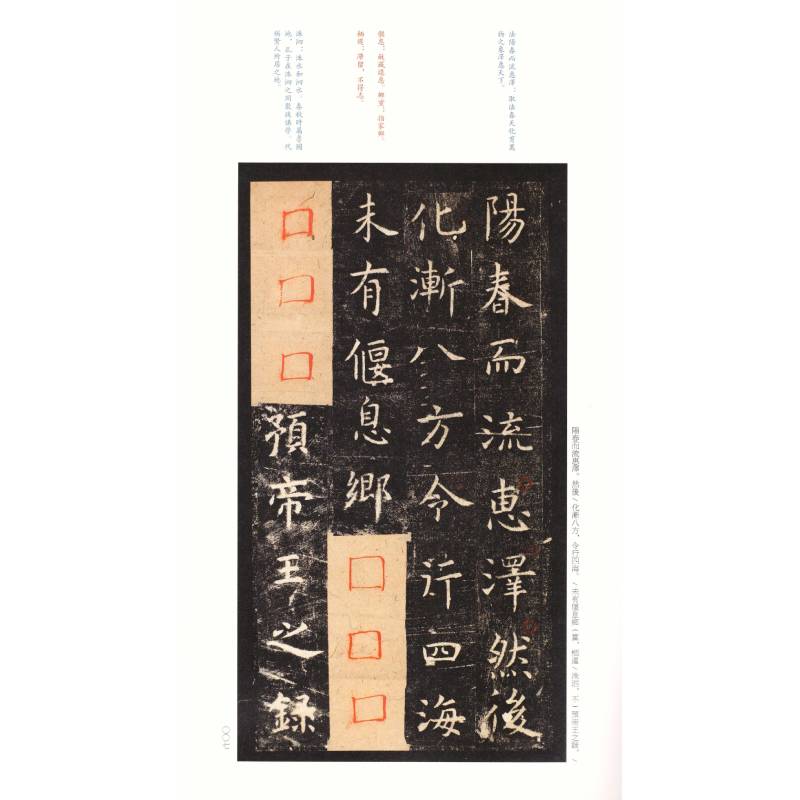 法陽春而流惠澤：取法春天化育萬
物之象澤惠天下。
偃息：藏退息。鄉黨：指家鄉。
栖遲：滯留，不得志。
洙泗：洙水和泗水。春秋時屬魯國
地，孔子在洙泗之間聚徒講學。代
稱聖人所居之地。
陽春而流惠澤然後
化漸八方令行四海
未有偃息鄉□□□
□□□預帝王之録
陽春而流惠澤。然後/化漸八方，令行四海。/未有偃息鄉（黨，栖遲/洙泗，不）預帝王之録，/
〇〇七